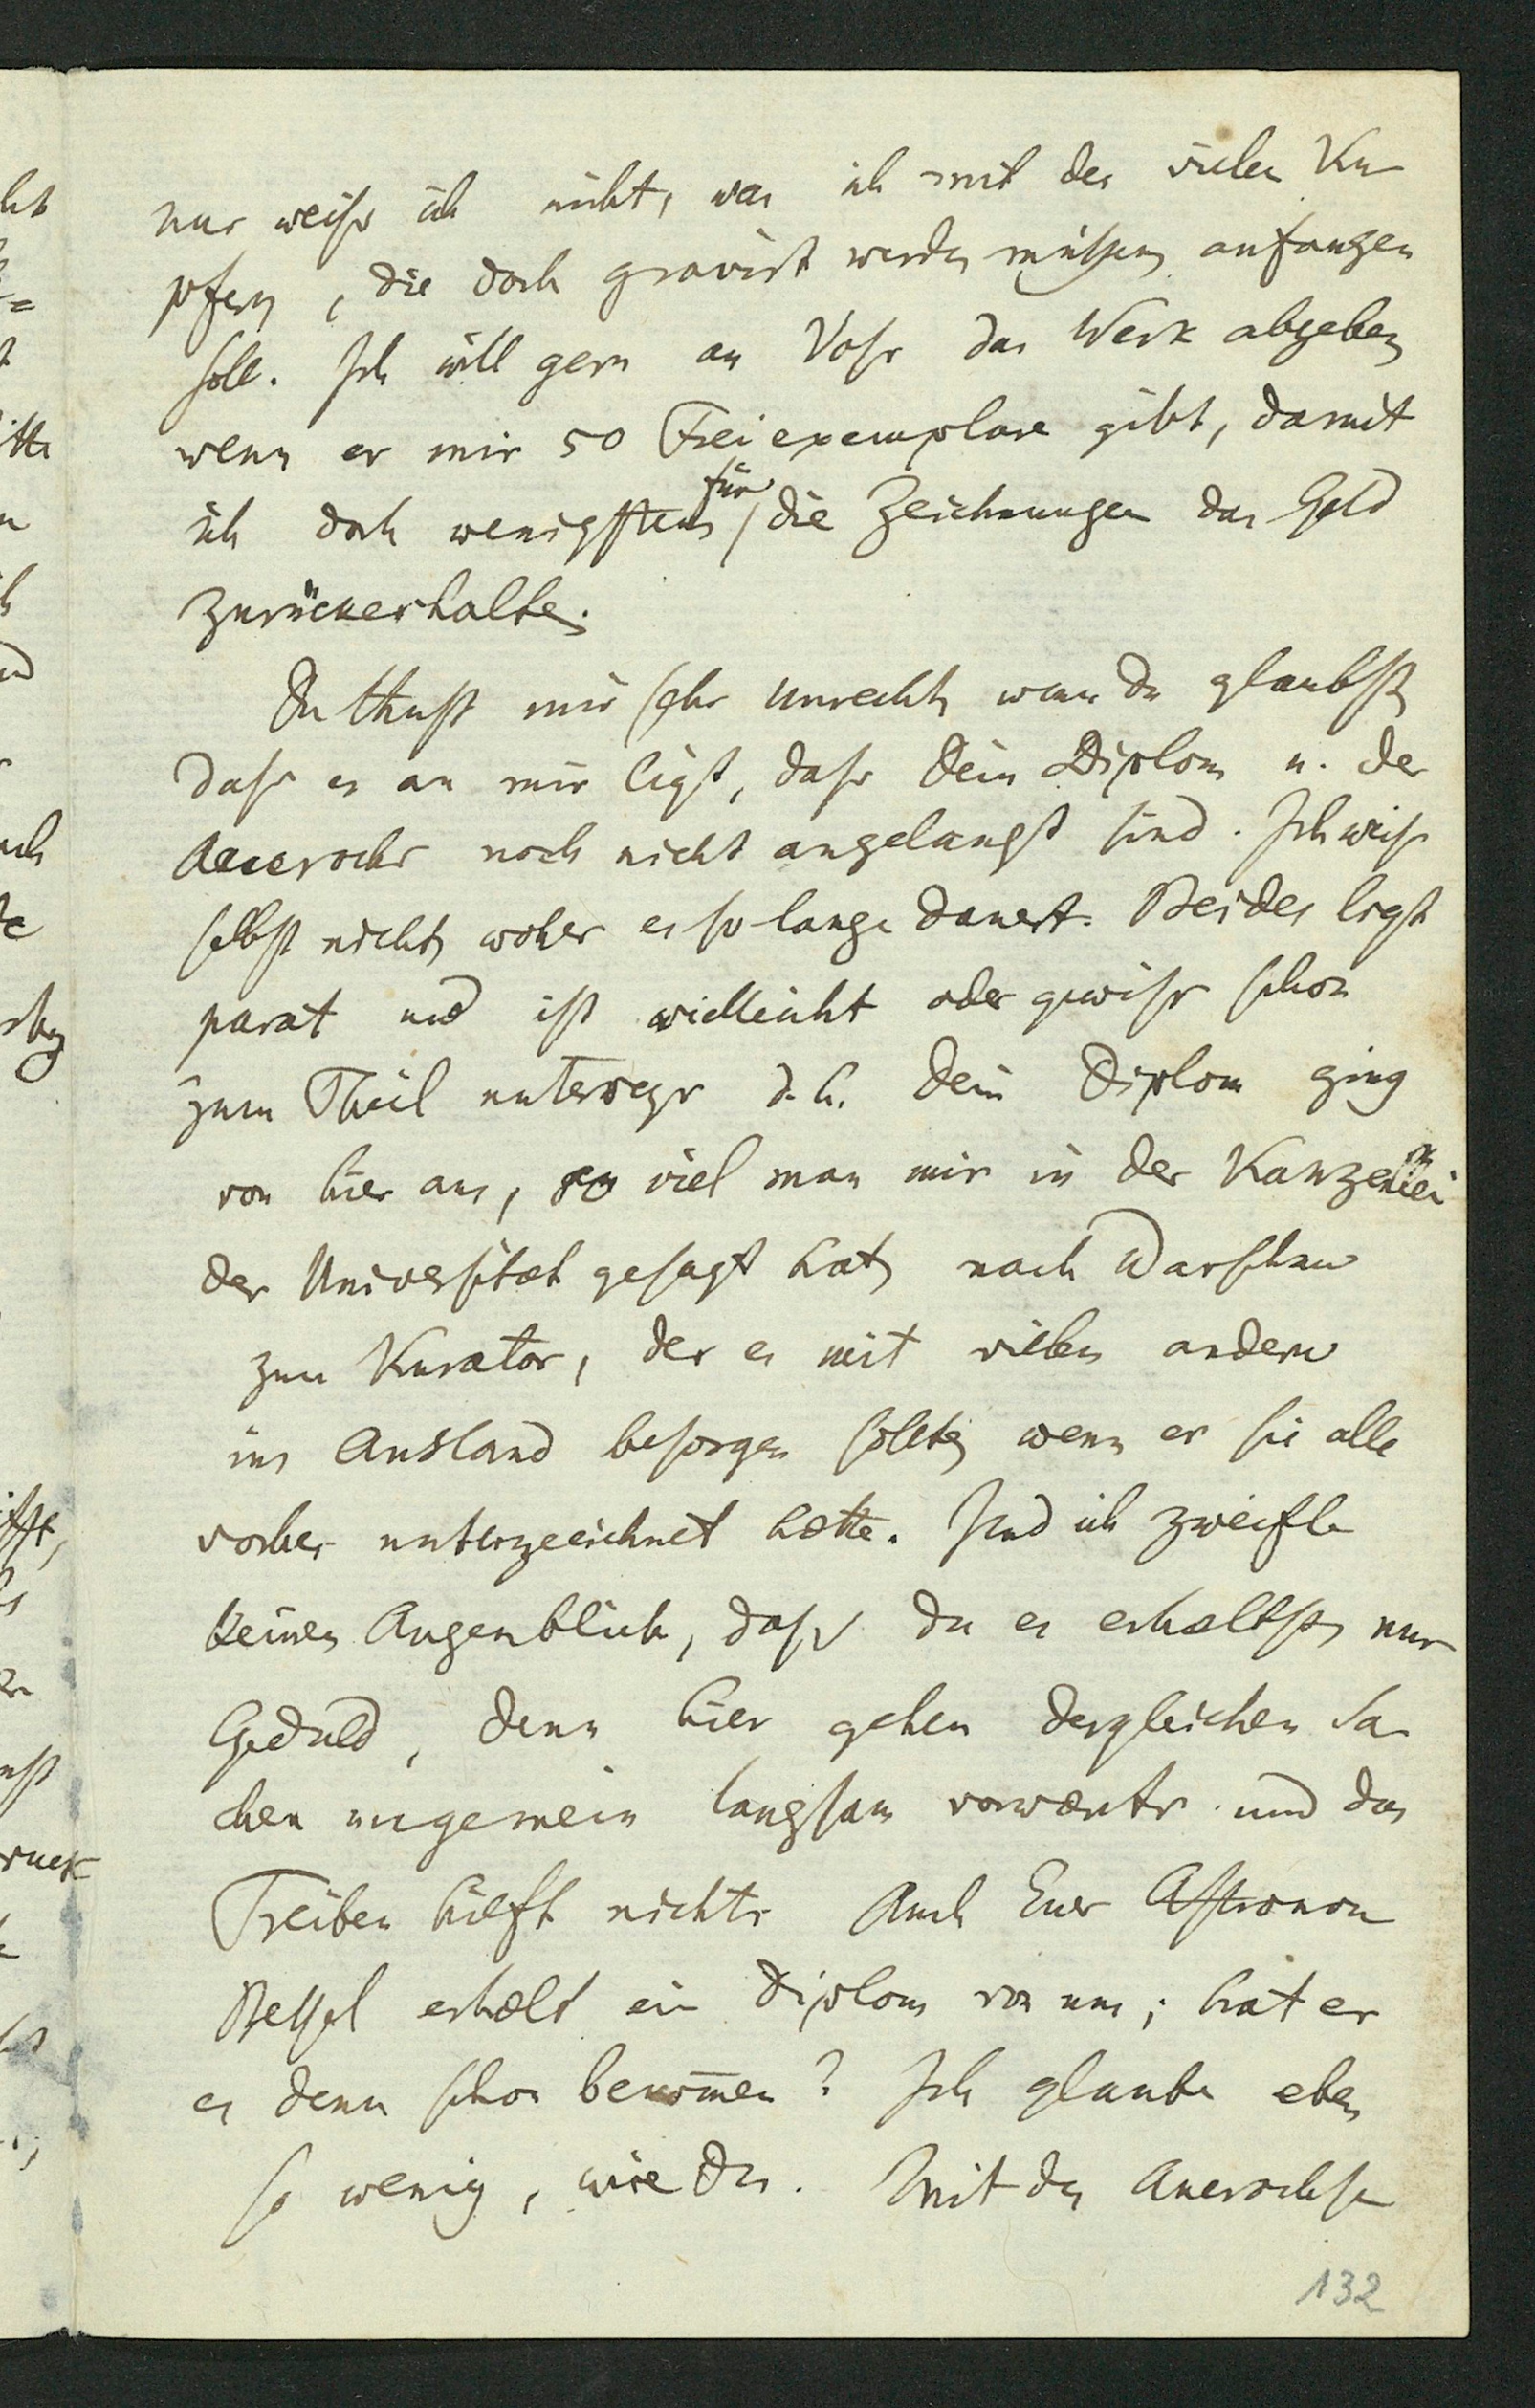 nur weiſs ich nicht, was ich mit den vielen Ku
pfern, die doch gravirt werden müſsen, anfangen
ſoll. Ich will gern an Voſs das Werk abgeben,
wenn er mir 50 Freiexemplare gibt, damit
ich doch wenigſtens für die Zeichnungen das Geld
zurückerhalte.
Du thuſt mir ſehr unrecht, wenn du glaubſt,
daſs es an mir ligt, daſs Dein Diplom u. der
Auerochs noch nicht angelangt ſind. Ich weiſs
ſelbſt nicht, woher es ſo lange dauert. Beides ligt
parat und iſt vielleicht oder gewiſs ſchon
zum Theil unterwegs d. h. dein Diplom ging
von hier aus, so viel man mir in der Kanzellei
der Univerſitæt geſagt hat, nach Warſchau
zum Kurator, der es mit vielen andern
ins Ausland beſorgen ſollte, wenn er ſie alle
vorher unterzeichnet hætte. Und ich zweifle
keinen Augenblick, daſs du es erhæltſt, nur
Geduld, denn hier gehen dergleichen Sa
chen ungemein langſam vorwærts und das
Treiben hilft nichts. Auch Euer Aſtronom
Beſſel erhælt ein Diplom von uns; hat er
es denn ſchon bekom̄en? Ich glaube eben
ſo wenig, wie Du. Mit den Auerochſen
132